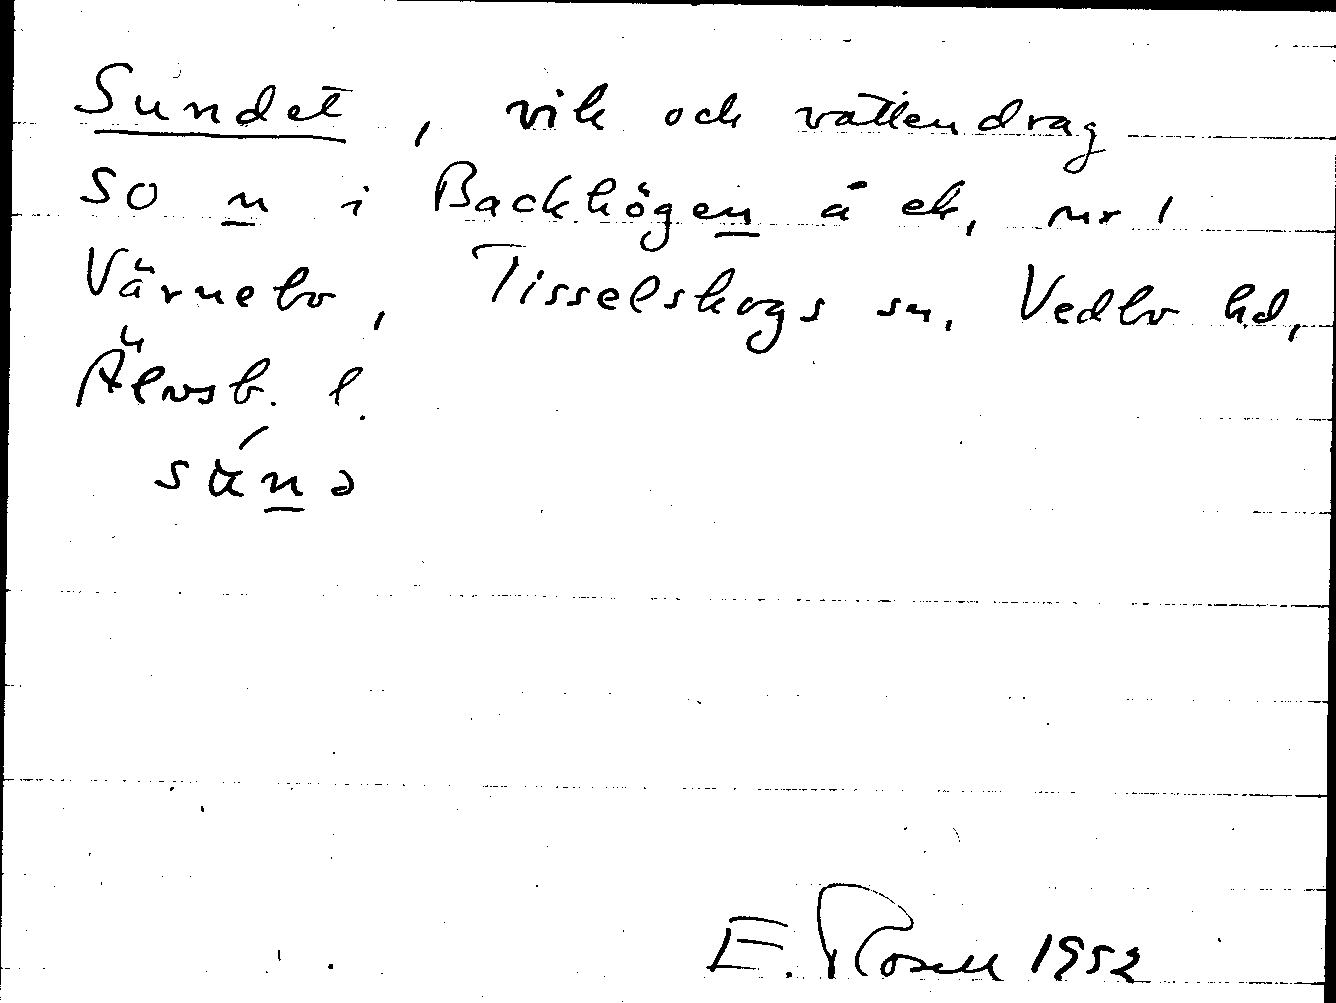 Sundet, vik och vattendrag
SO n i Backhögen å ek, nr 1
Värnebo, Tisselskogs sn, Vedbo hd,
Älvsb. l.
E. Rosell 1952